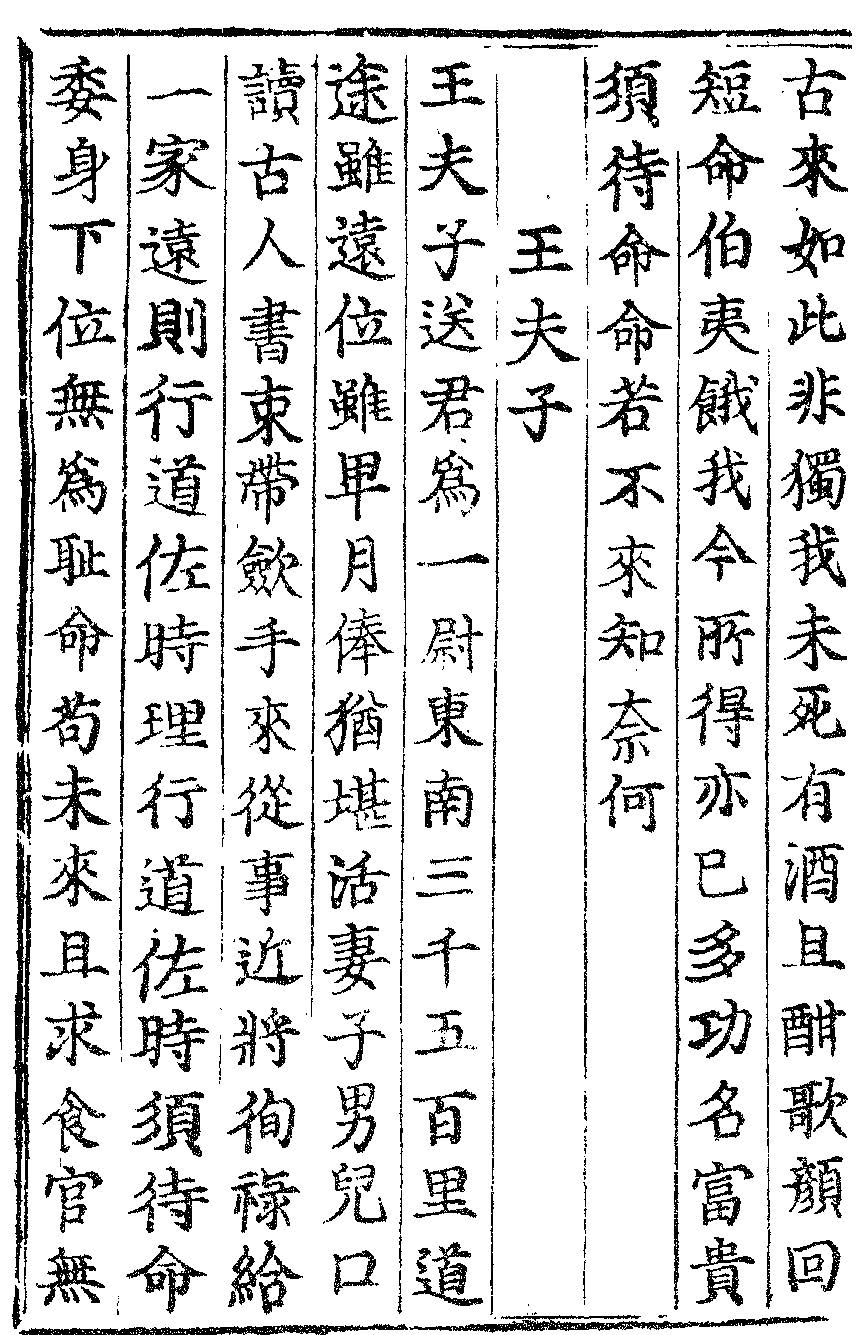 古來如此非獨我未死有酒且酣歌顔回
短命伯夷餓我今所得亦已多功名富貴
須待命命若不來知奈何
王夫子
王夫子送君爲一尉東南三千五百里道
途雖遠位雖卑月俸猶堪活妻子男兒口
讀古人書束帶斂手來從事近將徇祿給
一家遠則行道佐時理行道佐時須待命
委身下位無爲耻命苟未來且求食官無